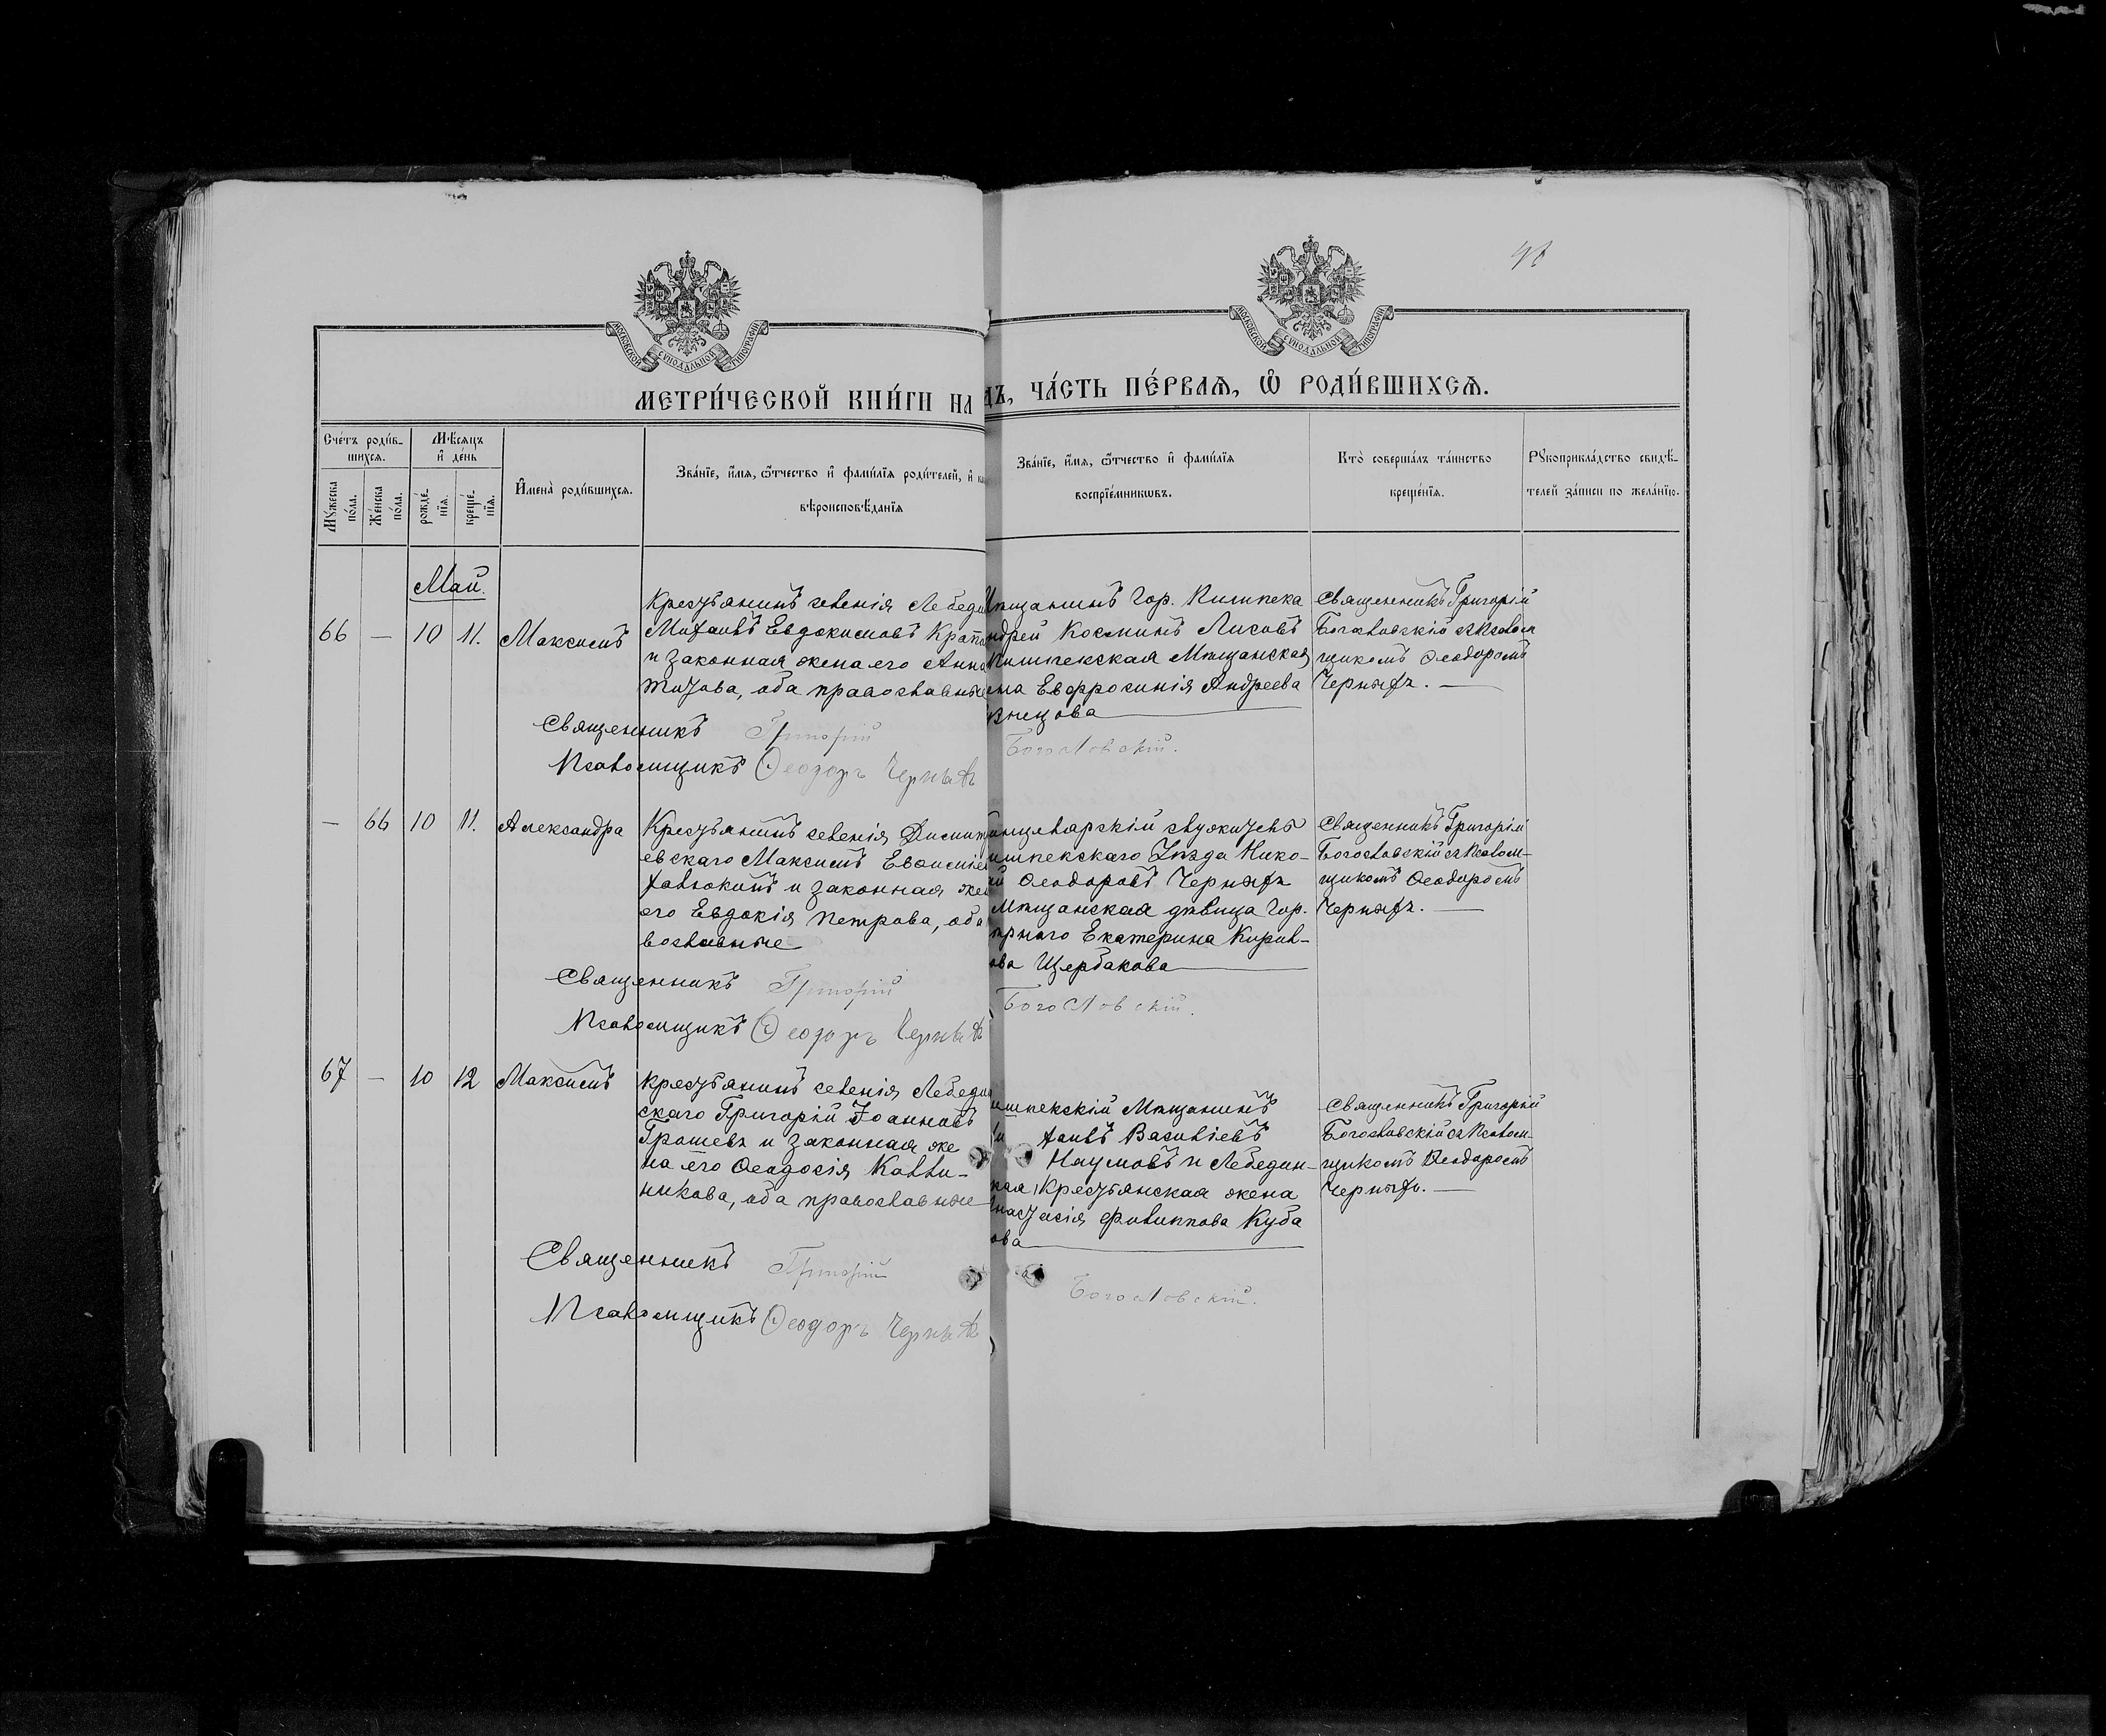 98
МОСКОВСКОЙ СѴНОДАЛЬНОЙ ТИПОГРАФИИ
МОСКОВСКОЙ СѴНОДАЛЬНОЙ ТИПОГРАФИИ
МЕТРИ́ЧЕСКОЙ КНИ́ГИ НА
ДЪ, ЧА́СТЬ ПЕ́РВАѦ, Ѡ҆ РОДИ́ВШИХСѦ.
Сче́тъ роди́в-
шихсѧ.
Мꙋ́жеска по́ла.
Же́нска по́ла.
Мѣ́сѧцъ
и҆ де́нь
рожде́-
нїѧ.
креще́-
нїѧ.
И҆мена̀ роди́вшихсѧ.
Зва́нїе, и҆́мѧ, ѻ҆́тчество и҆ фами́лїѧ роди́телей, и҆ ка
вѣроисповѣ́данїѧ
Зва́нїе, и҆́мѧ, ѻ҆́тчество и҆ фами́лїѧ
воспрїе́мникѡвъ.
Кто̀ соверша́лъ та́инство
креще́нїѧ.
Рꙋкоприкла́дство свидѣ́-
телей за́писи по жела́нїю.
Май.
66 — 10 11. Максимъ
Крестьянинъ селенія Лебеди
Михаилъ Евдокимовъ
и законная жена его Анна
това, оба православные
Мѣщанинъ гор. Пишпека
ндрей Косминъ Лисовъ
Пишпекская Мѣщанская
на Евфросинія Андреева
знецова
Священникъ Григорій
Богословскій съ Псалом
щикомъ Ѳеодоромъ
Черныхъ. —
Священникъ Григорій
Богословскій.
Псаломщикъ Ѳеодоръ Черныхъ
— 66 10 11. Александра
Крестьянинъ селенія Димит
евскаго Максимъ Евѳиміев
Хавлюкинъ и законная жен
его Евдокія Петрова, оба
вославные
анцелярскій служитель
ишпекскаго Уѣзда Нико-
й Ѳеодоровъ Черныхъ
Мѣщанская дѣвица гор.
рнаго Екатерина Кирил-
ова Щербакова
Священникъ Григорій
Богословскій съ Псалом-
щикомъ Ѳеодоромъ
Черныхъ. —
Священникъ Григорій
Богословскій.
Псаломщикъ Ѳеодоръ Черныхъ
67 — 10 12 Максимъ
Крестьянинъ селенія Лебедин
скаго Григорій Іоанновъ
Грошевъ и законная же
на его Ѳеодосія Калли-
никова, оба православные
ишпекскій Мѣщанинъ
хаилъ Василіевъ
Наумовъ и Лебедин-
кая Крестьянская жена
настасія Филиппова Куба
ова
Священникъ Григорій
Богословскій съ Псалом-
щикомъ Ѳеодоромъ
Черныхъ. —
Священникъ Григорій
Богословскій.
Псаломщикъ Ѳеодоръ Черныхъ